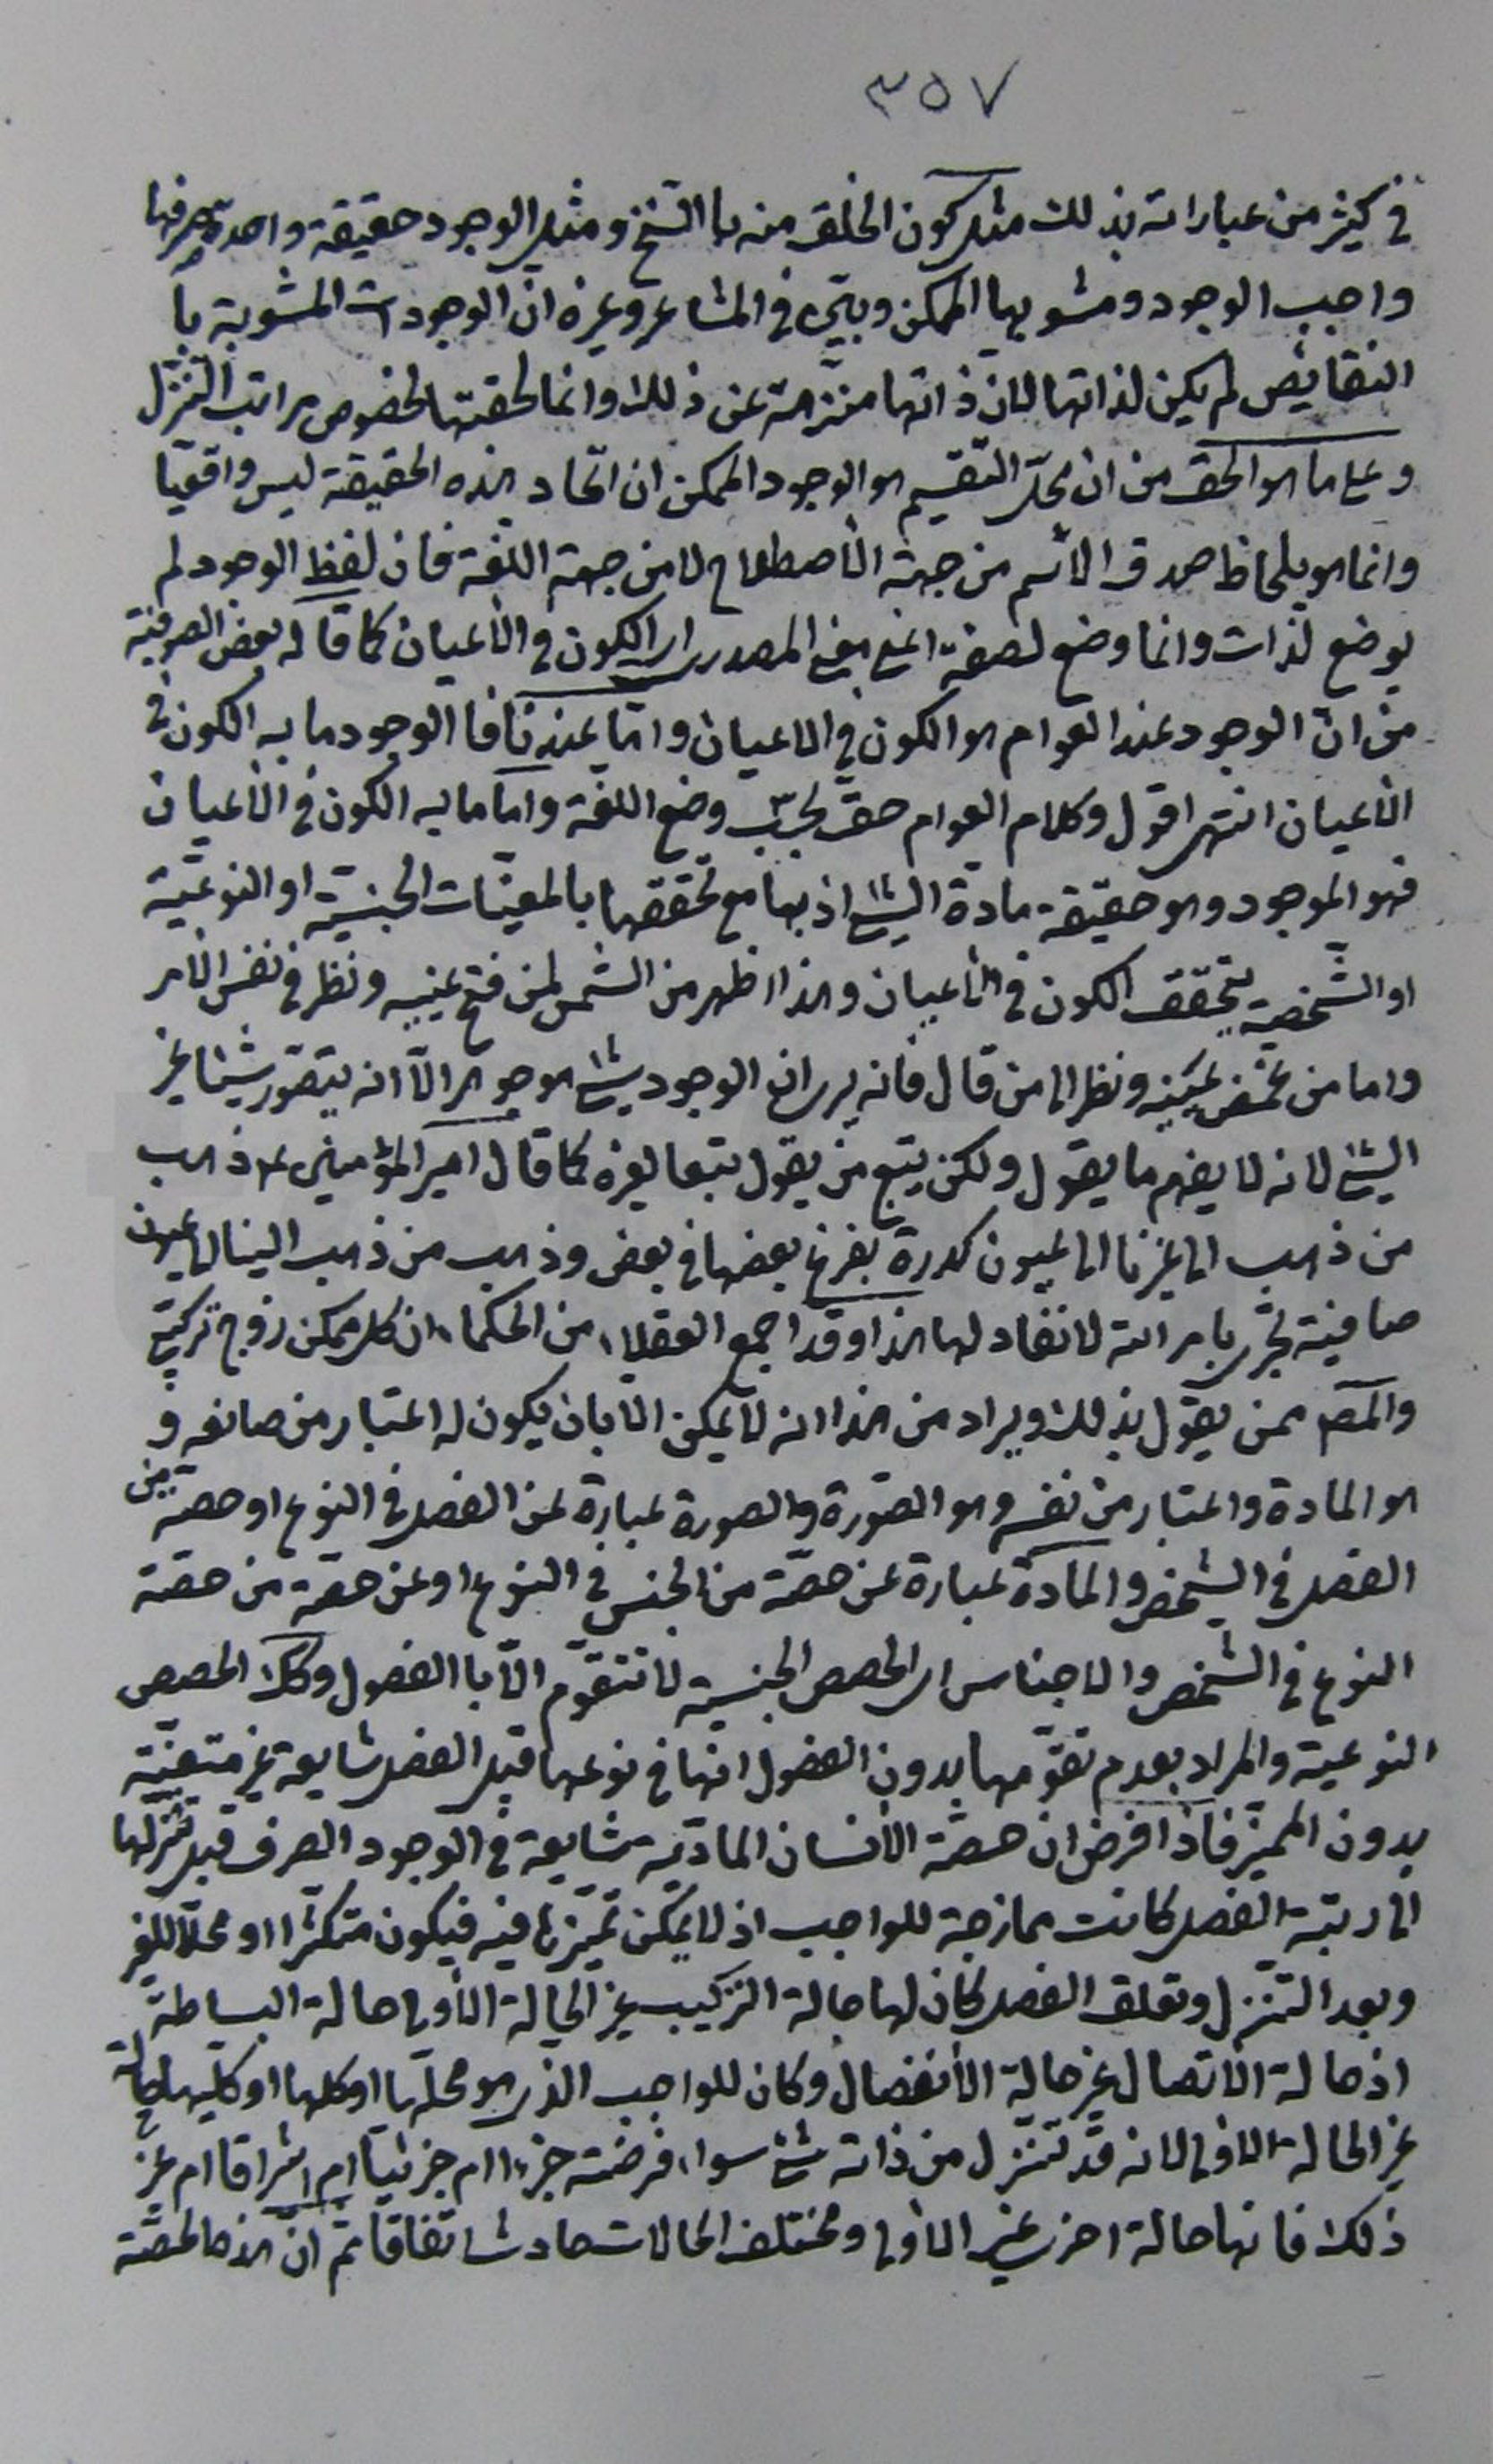 ٣٥٧
في كثير من عباراته بذلك مثل كون الخلق منه با السنخ و مثل الوجود حقيقة واحدة صرفها
واجب الوجود ومشوبها الممكن وبيّن في المشاعر وغيره انّ الوجودات المشوبة با
النقايص لم يكن لذاتها لان ذاتها منزهة عن ذلك وانما لحقتها لخصوص مراتب التنزل
وعلى ما هو الحق من ان محلّ التقسيم هو الوجود الممكن ان اتحاد هذه الحقيقة ليس واقعيا
وانما هو بلحاظ صدق الاسم من جهة الأصطلاح لا من جهة اللغة فان لفظ الوجود لم
يوضع لذات وانما وضع لصفة اعني معنى المصدر اي الكون في الأعيان كما قاله بعض الصوفية
من ان الوجود عند العوام هو الكون في الاعيان وامّا عندنا فا الوجود ما به الكون في
الأعيان انتهى اقول وكلام العوام حق بحسب وضع اللغة واما ما به الكون في الأعيان
فهو الموجود وهو حقيقة مادة الشيء اذ بها مع تحققها بالمعينات الجنسية او النوعيّة
او الشّخصية يتحقق الكون في الأعيان وهذا اظهر من الشمس لمن فتح عينيه ونظر في نفس الأمر
واما من غمّض عينيه ونظر الى من قال فانه يرى ان الوجود شيء موجود الّا انه يتصور شيئا غير
الشيء لانه لا يفهم ما يقول ولكن يتبع من يقول تبعا لغيره كما قال امير المؤمنين ع ذهب
من ذهب الى غيرنا الى عيون كدرة يفرغ بعضها في بعض وذهب من ذهب الينا الى عيون
صافية تجري بامر الله لا نفاد لها هذا وقد اجمع العقلاء من الحكماء ان كل ممكن زوج تركيبي
والمصـ ممن يقول بذلك ويراد من هذا انه لا يمكن الا بان يكون له اعتبار من صانعه و
هو المادة واعتبار من نفسه وهو الصّورة والصورة عبارة عن الفصل في النوع او حصة من
الفصل في الشخص والمادة عبارة عن حصّة من الجنس في النوع او عن حصة من حصّة
النوع في الشّخص والاجناس اي الحصص الجنسية لا تتقوّم الّا با الفصول وكذلك الحصص
النوعية والمراد بعدم تقوّمها بدون الفصول انها في نوعها قبل الفصل شايعة غير متعينة
بدون المميز فاذا فرض ان حصّة الأنسان الماديّة شايعة في الوجود الصرف قبل تنزلها
الى رتبة الفصل كانت ممازجة للواجب اذ لا يمكن تميّزها فيه فيكون متكثرا او محلا للغير
وبعد التنزل وتعلق الفصل كان لها حالة التركيب غير الحالة الأولى حالة البساطة
اذ حالة الأتصال غير حالة الأنفصال وكان للواجب الذي هو محلّها او كلها او كليها حالة
غير الحالة الاولى لانه قد تنزل من ذاته شيء سواء فرضته جزءا ام جزئيا ام اشراقا ام غير
ذلك فانها حالة اخرى غير الاولى ومختلف الحالات حادث اتفاقا ثمّ انّ هذه الحصّة